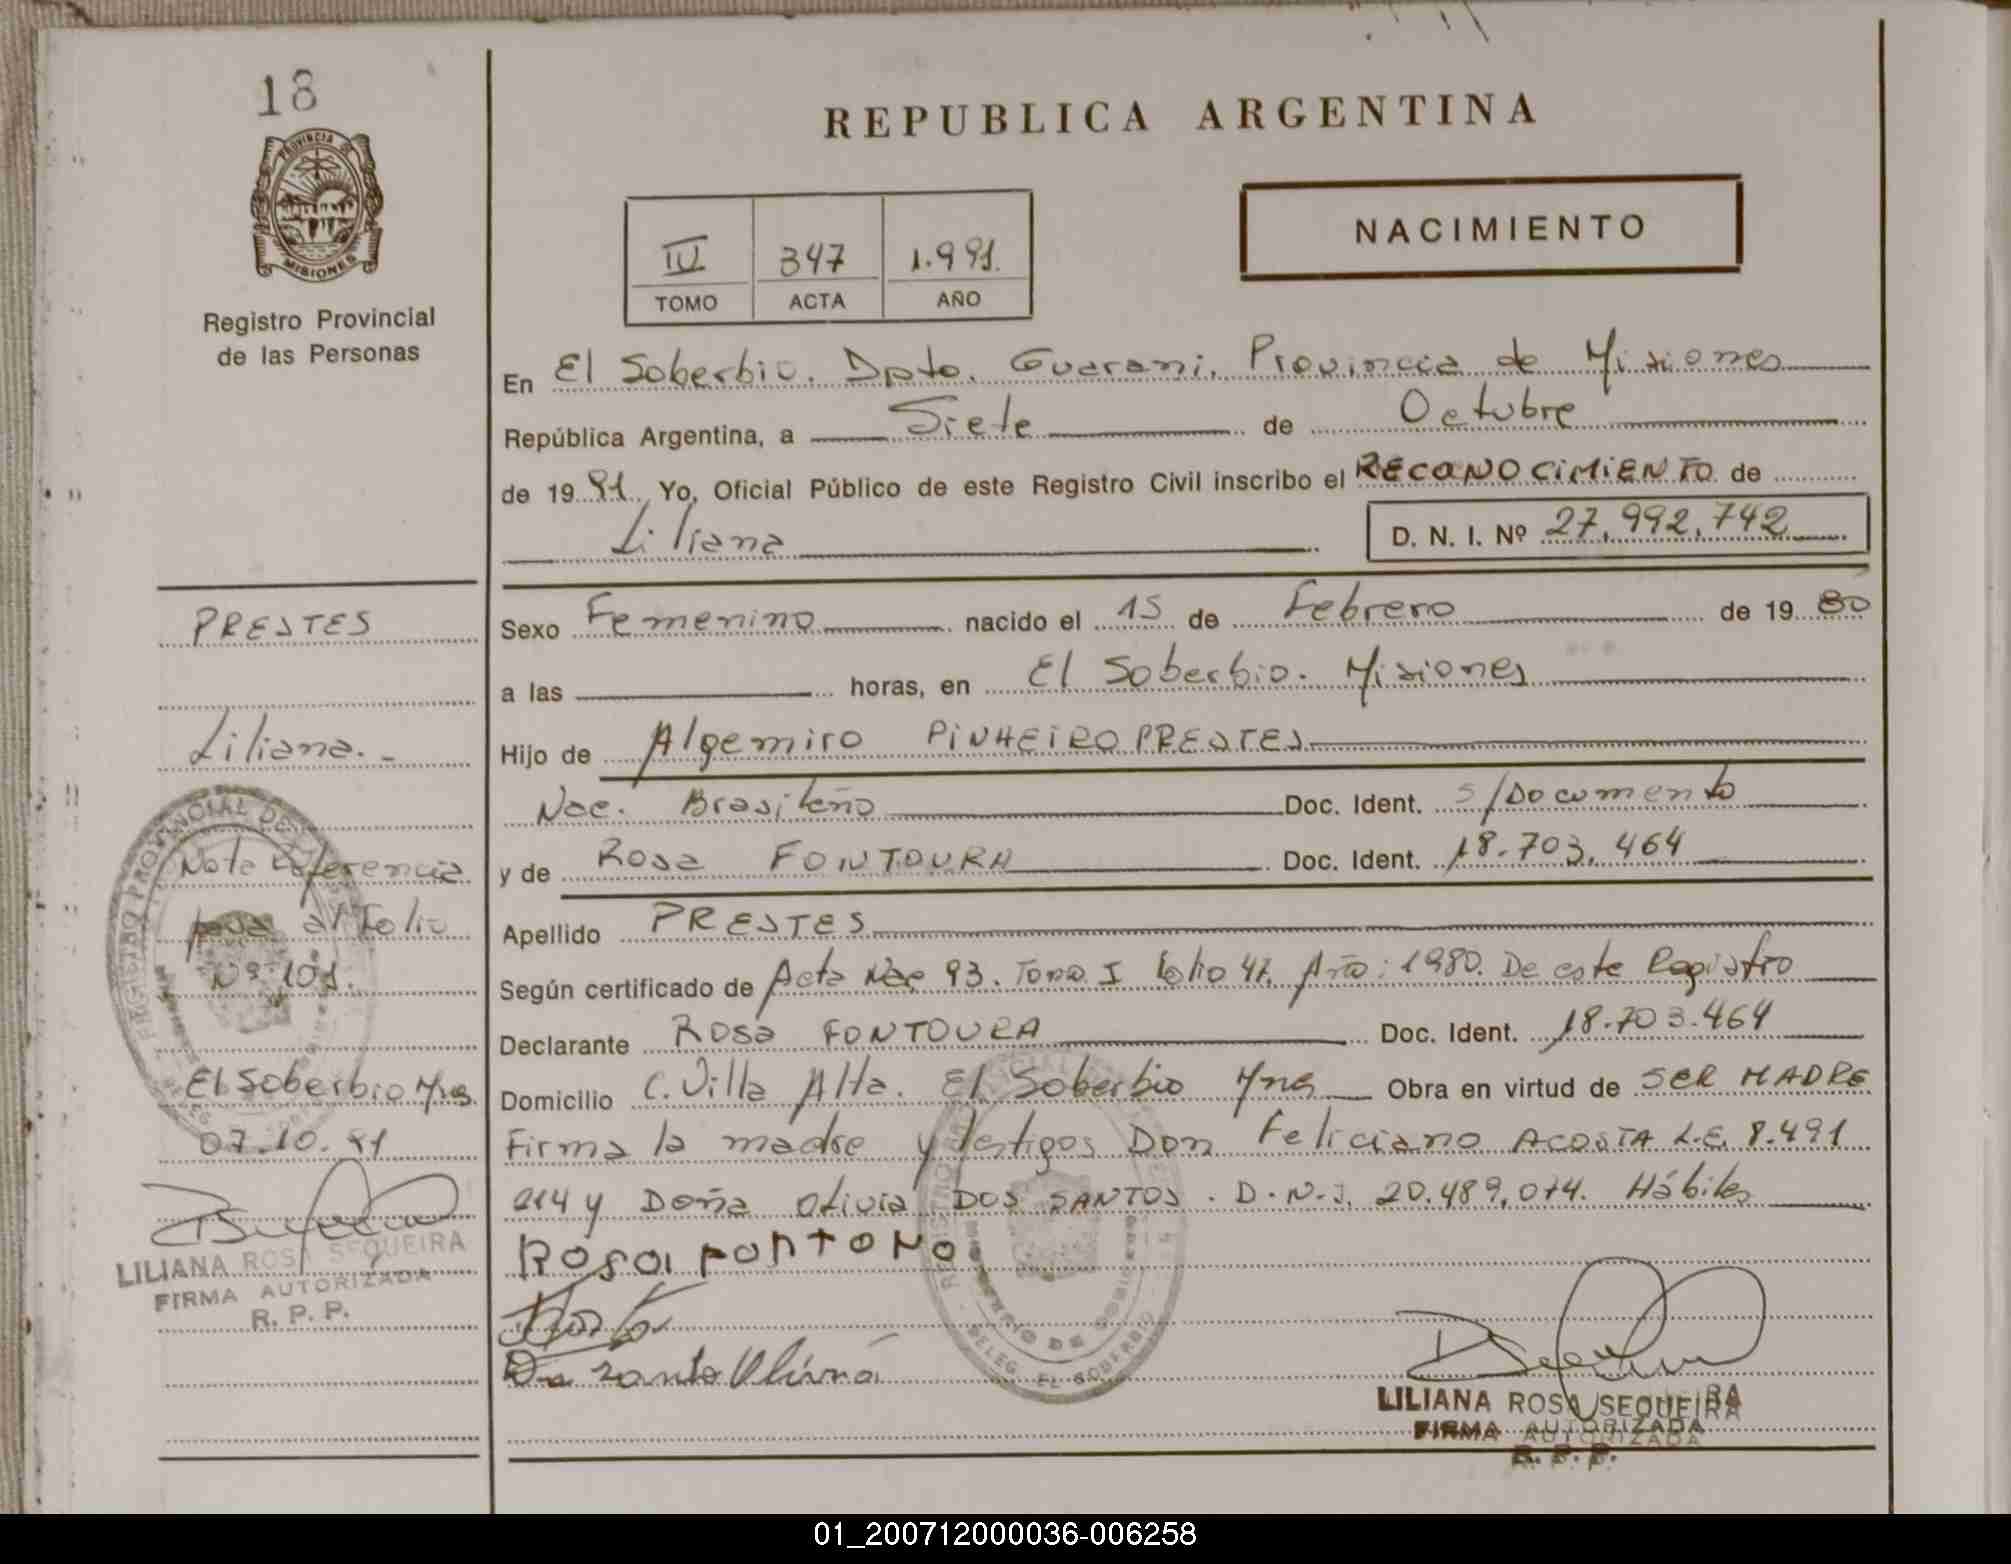 18
PROVINCIA DE
MISIONES
Registro Provincial
de las Personas
REPUBLICA ARGENTINA
NACIMIENTO
IV 347 1.991.
TOMO ACTA AÑO
En El Soberbio. Dpto. Guarani. Provincia de Misiones
República Argentina, a Siete de Octubre
de 19 91 Yo, Oficial Público de este Registro Civil inscribo el RECONOCIMIENTO de
Liliana D. N. I. Nº 27.992.742
Sexo Femenino nacido el 15 de Febrero de 19 80
a las horas, en El Soberbio. Misiones
Hijo de Algemiro PINHEIRO PRESTES
Nac. Brasileño Doc. Ident. S/Documento
y de Rosa FONTOURA Doc. Ident. 18.703.464
Apellido PRESTES
Según certificado de Acta Nac 93. Tomo I Folio 47. Año: 1980. De este Registro
Declarante Rosa FONTOURA Doc. Ident. 18.703.464
Domicilio C. Villa Alta. El Soberbio Mnes Obra en virtud de SER MADRE
Firma la madre y testigos Don Feliciano ACOSTA L.E. 8.491
214 y Doña Olivia DOS SANTOS. D.N.I. 20.489.074. Hábiles
LILIANA ROSA SEQUEIRA
FIRMA AUTORIZADA
R. P. P.
PRESTES
Liliana.-
Nota Referencia
pasa al Folio
Nº 101.
El Soberbio Mnes
07.10.91
LILIANA ROSA SEQUEIRA
FIRMA AUTORIZADA
R. P. P.
01_200712000036-006258